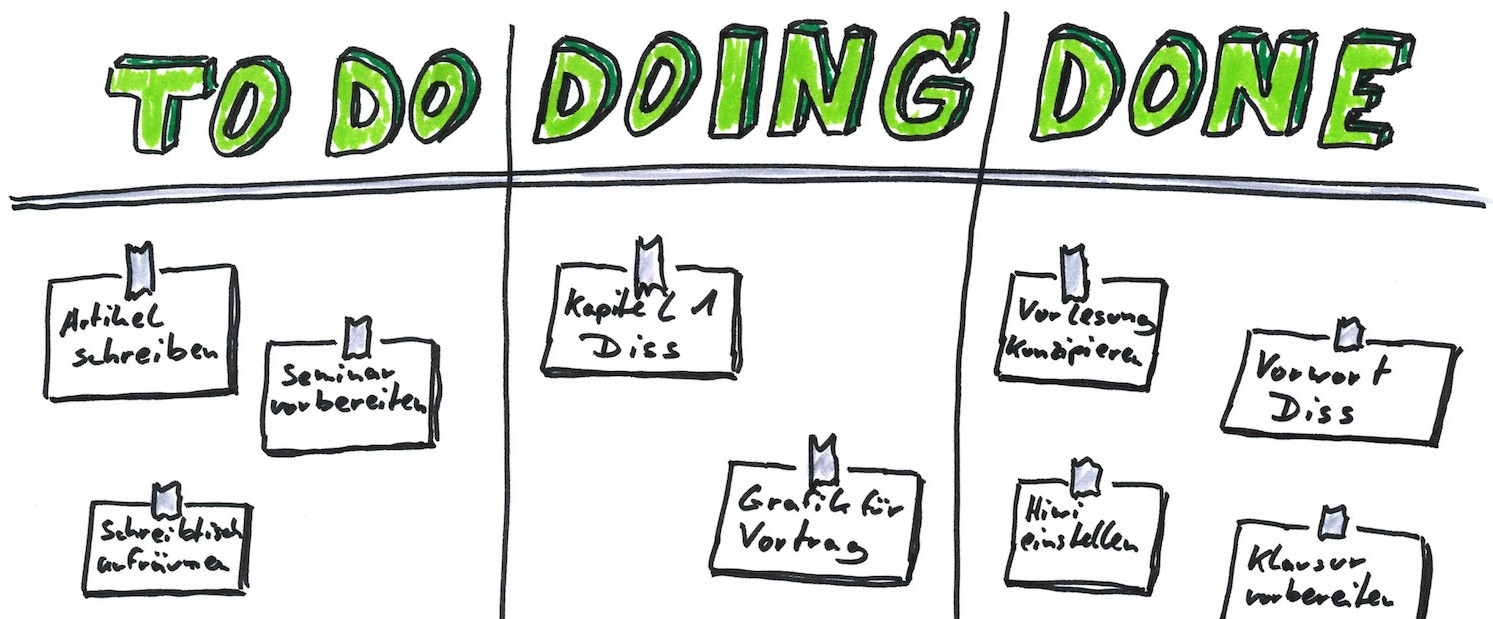 TO DO
DOING
DONE
Artikel
schreiben
Seminar
vorbereiten
Schreibtisch
aufräumen
Kapitel 1
Diss
Grafik für
Vortrag
Vorlesung
konzipieren
Vorwort
Diss
Hiwi
einstellen
Klausur
vorbereiten